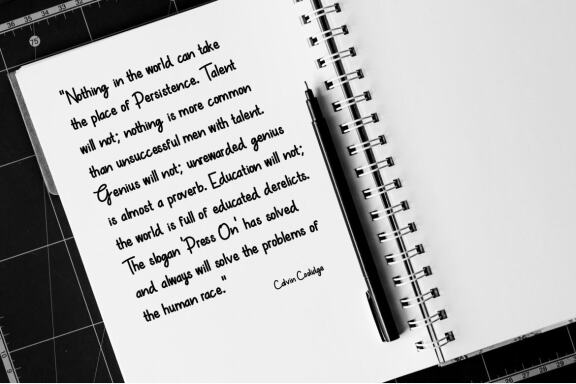 "Nothing in the world can take
the place of Persistence. Talent
will not; nothing is more common
than unsuccessful men with talent.
Genius will not; unrewarded genius
is almost a proverb. Education will not;
the world is full of educated derelicts.
The slogan 'Press On' has solved
and always will solve the problems of
the human race."
Calvin Coolidge